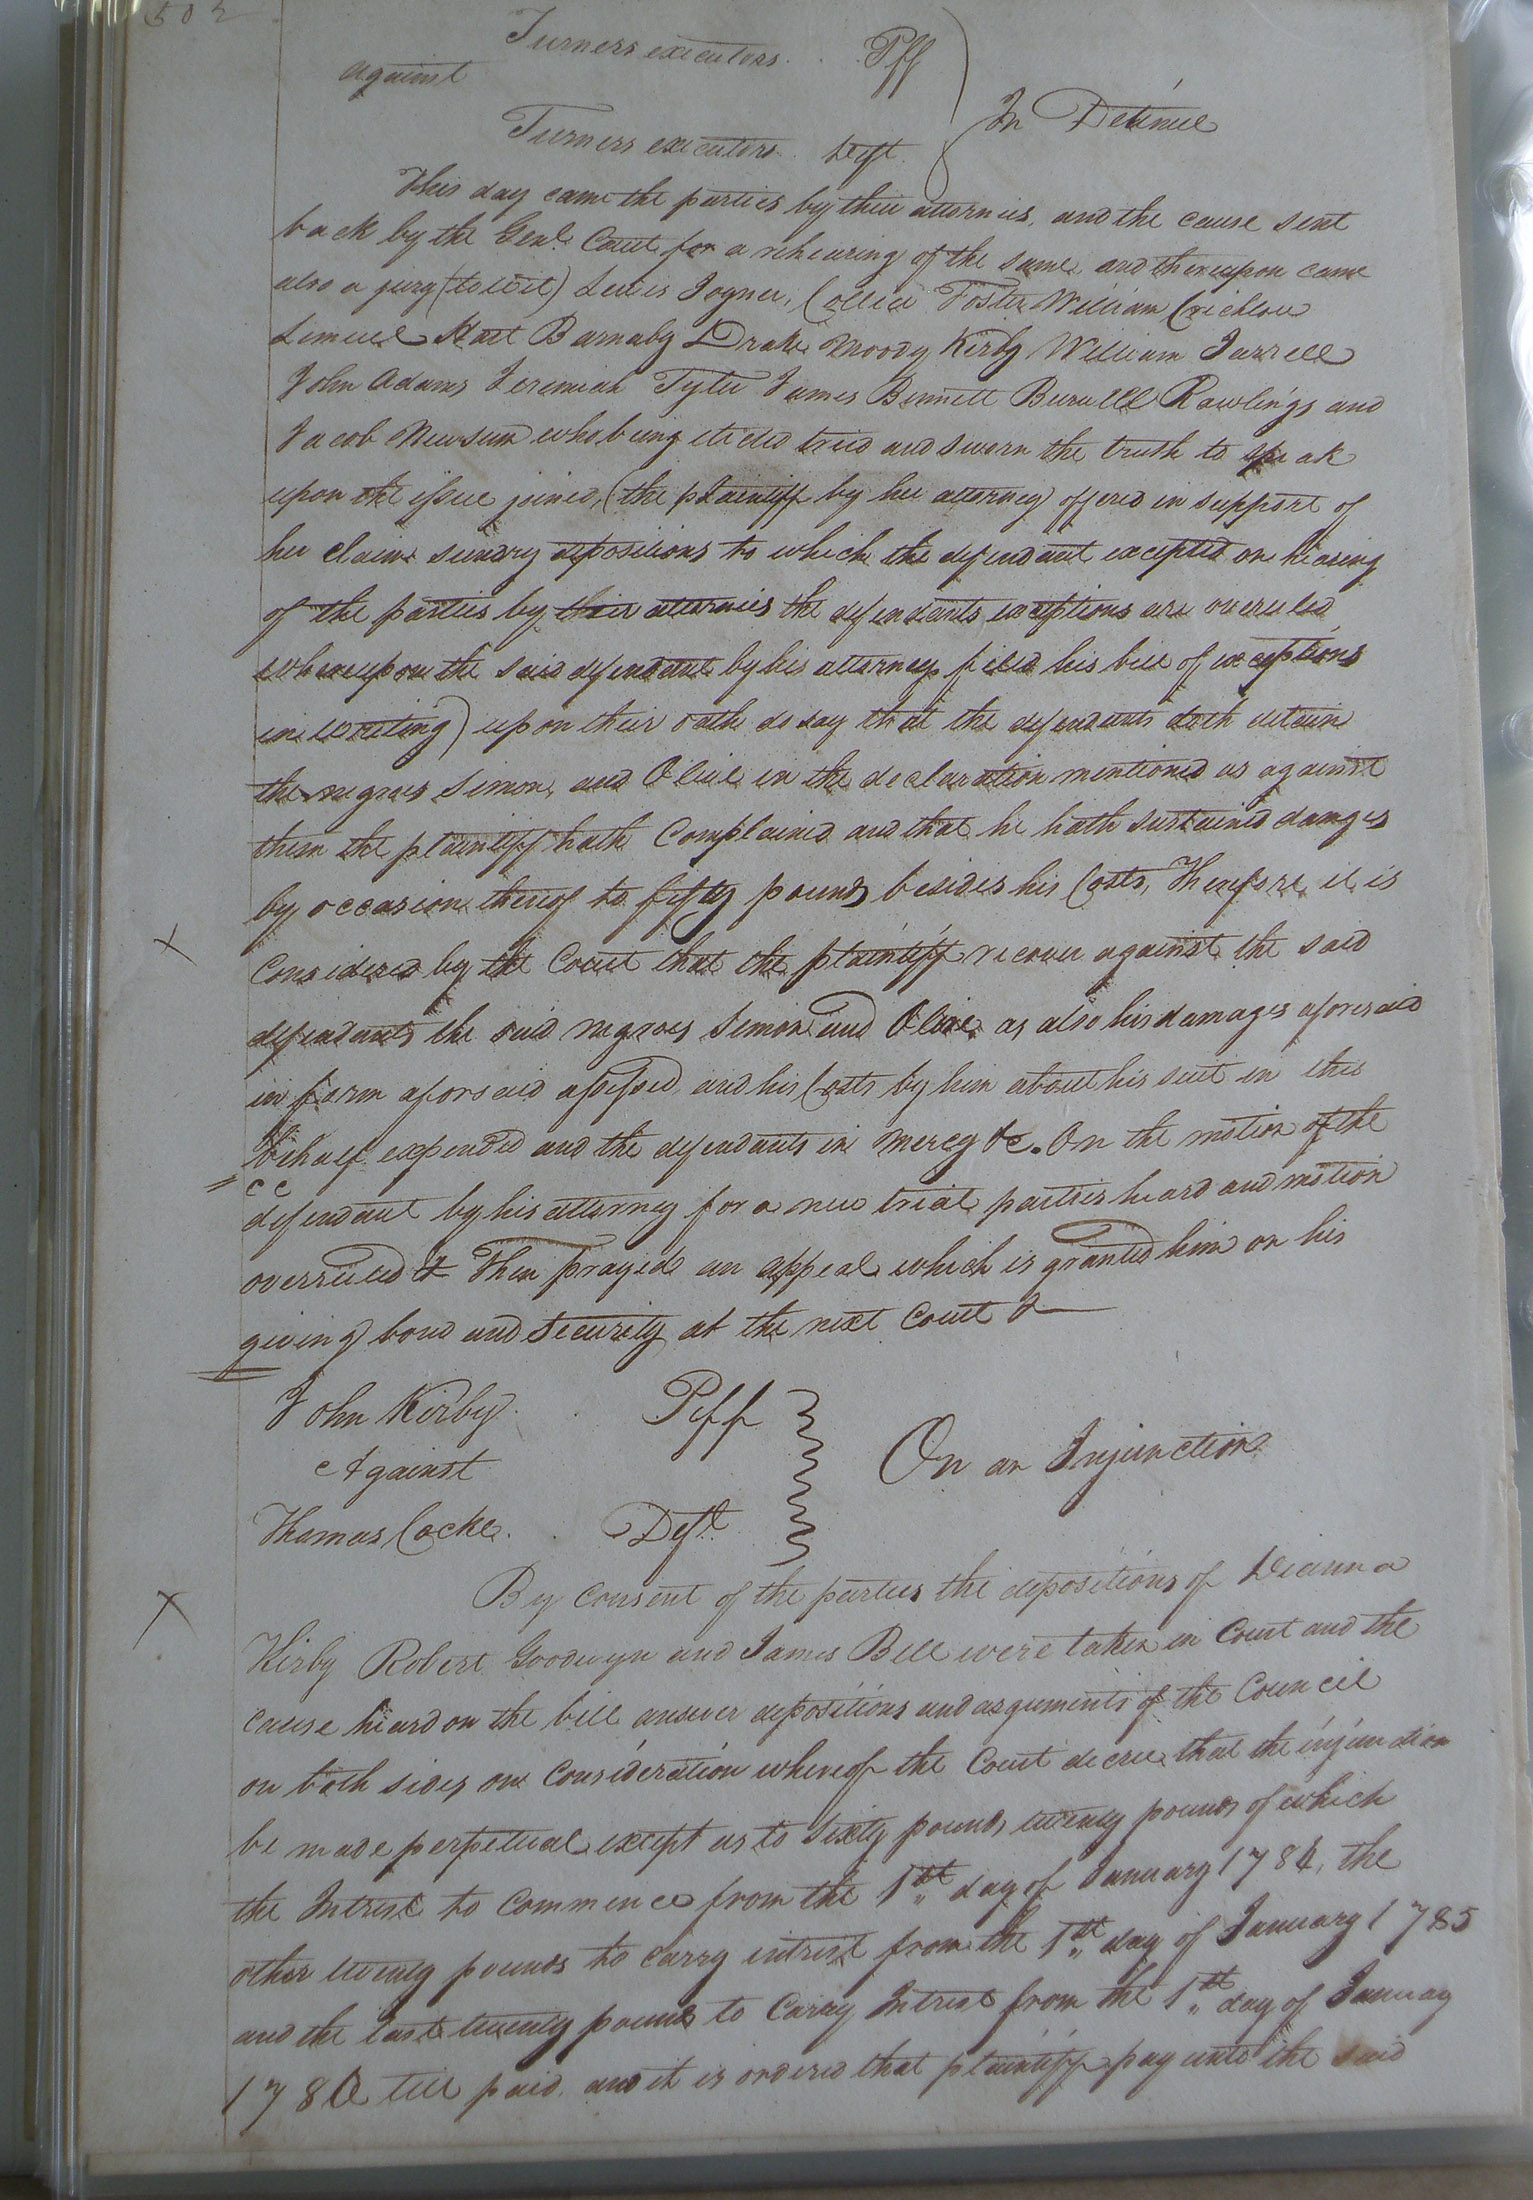 502
Turners executors . . Plff
against
In Detinue
Turners executors . Deft
This day came the parties by their attornies, and the cause sent
back by the Genl. Court for a rehearing of the same and thereupon came
also a jury (to wit) Lewis Joyner, Collier Foster William Crichlow
Lemuel Hart Barnaby Drake Moody Kirby William Jarrell
John Adams Jeremiah Tyler James Bennett Burwell Rawlings and
Jacob Newsum who being elected tried and sworn the truth to speak
upon the issue joined, (the plaintiff by her attorney offered in support of
her claim sundry depositions to which the defendant excepted on hearing
of the parties by their attornies the defendants exceptions are overuled
whereupon the said defendant by his attorney filed his bill of exceptions
in writing) upon their oath do say that the defendants doth detain
the negroes Simon, and Olive in the declaration mentioned as against
them the plaintiff hath Complained and that he hath sustained damges
by occasion thereof to fifty pounds besides his Costs, Therefore it is
Considered by the Court that the plaintiff recover against the said
defendants the said negroes Simon and Olive as also his damages aforesaid
in form aforsaid assessed, and his Costs by him about his suit in this
behalf expended and the defendants in mercy &c. On the motion of the
defendant by his attorney for a new trial parties heard and motion
overruled & Then prayed an appeal which is granted him on his
giving bond and security at the next Court &
John Kirby . . Plff
Against
On an Injunction
Thomas Cocke . . Deft.
By Consent of the parties the depositions of Dianna
Kirby Robert Goodwyn and James Bell were taken in Court and the
cause heard on the bill answer depositions and arguments of the Council
on both sides on Consideration whereof the Court decree that the injunction
be made perpetual except as to Sixty pounds twenty pounds of which
the Intrest to Commence from the 1st day of January 1784, the
other twenty pounds to carry intrest from the 1st day of January 1785
and the last twenty pounds to Carry Intrest from the 1st day of January
till paid, and it is ordered that plaintiff pay unto the said